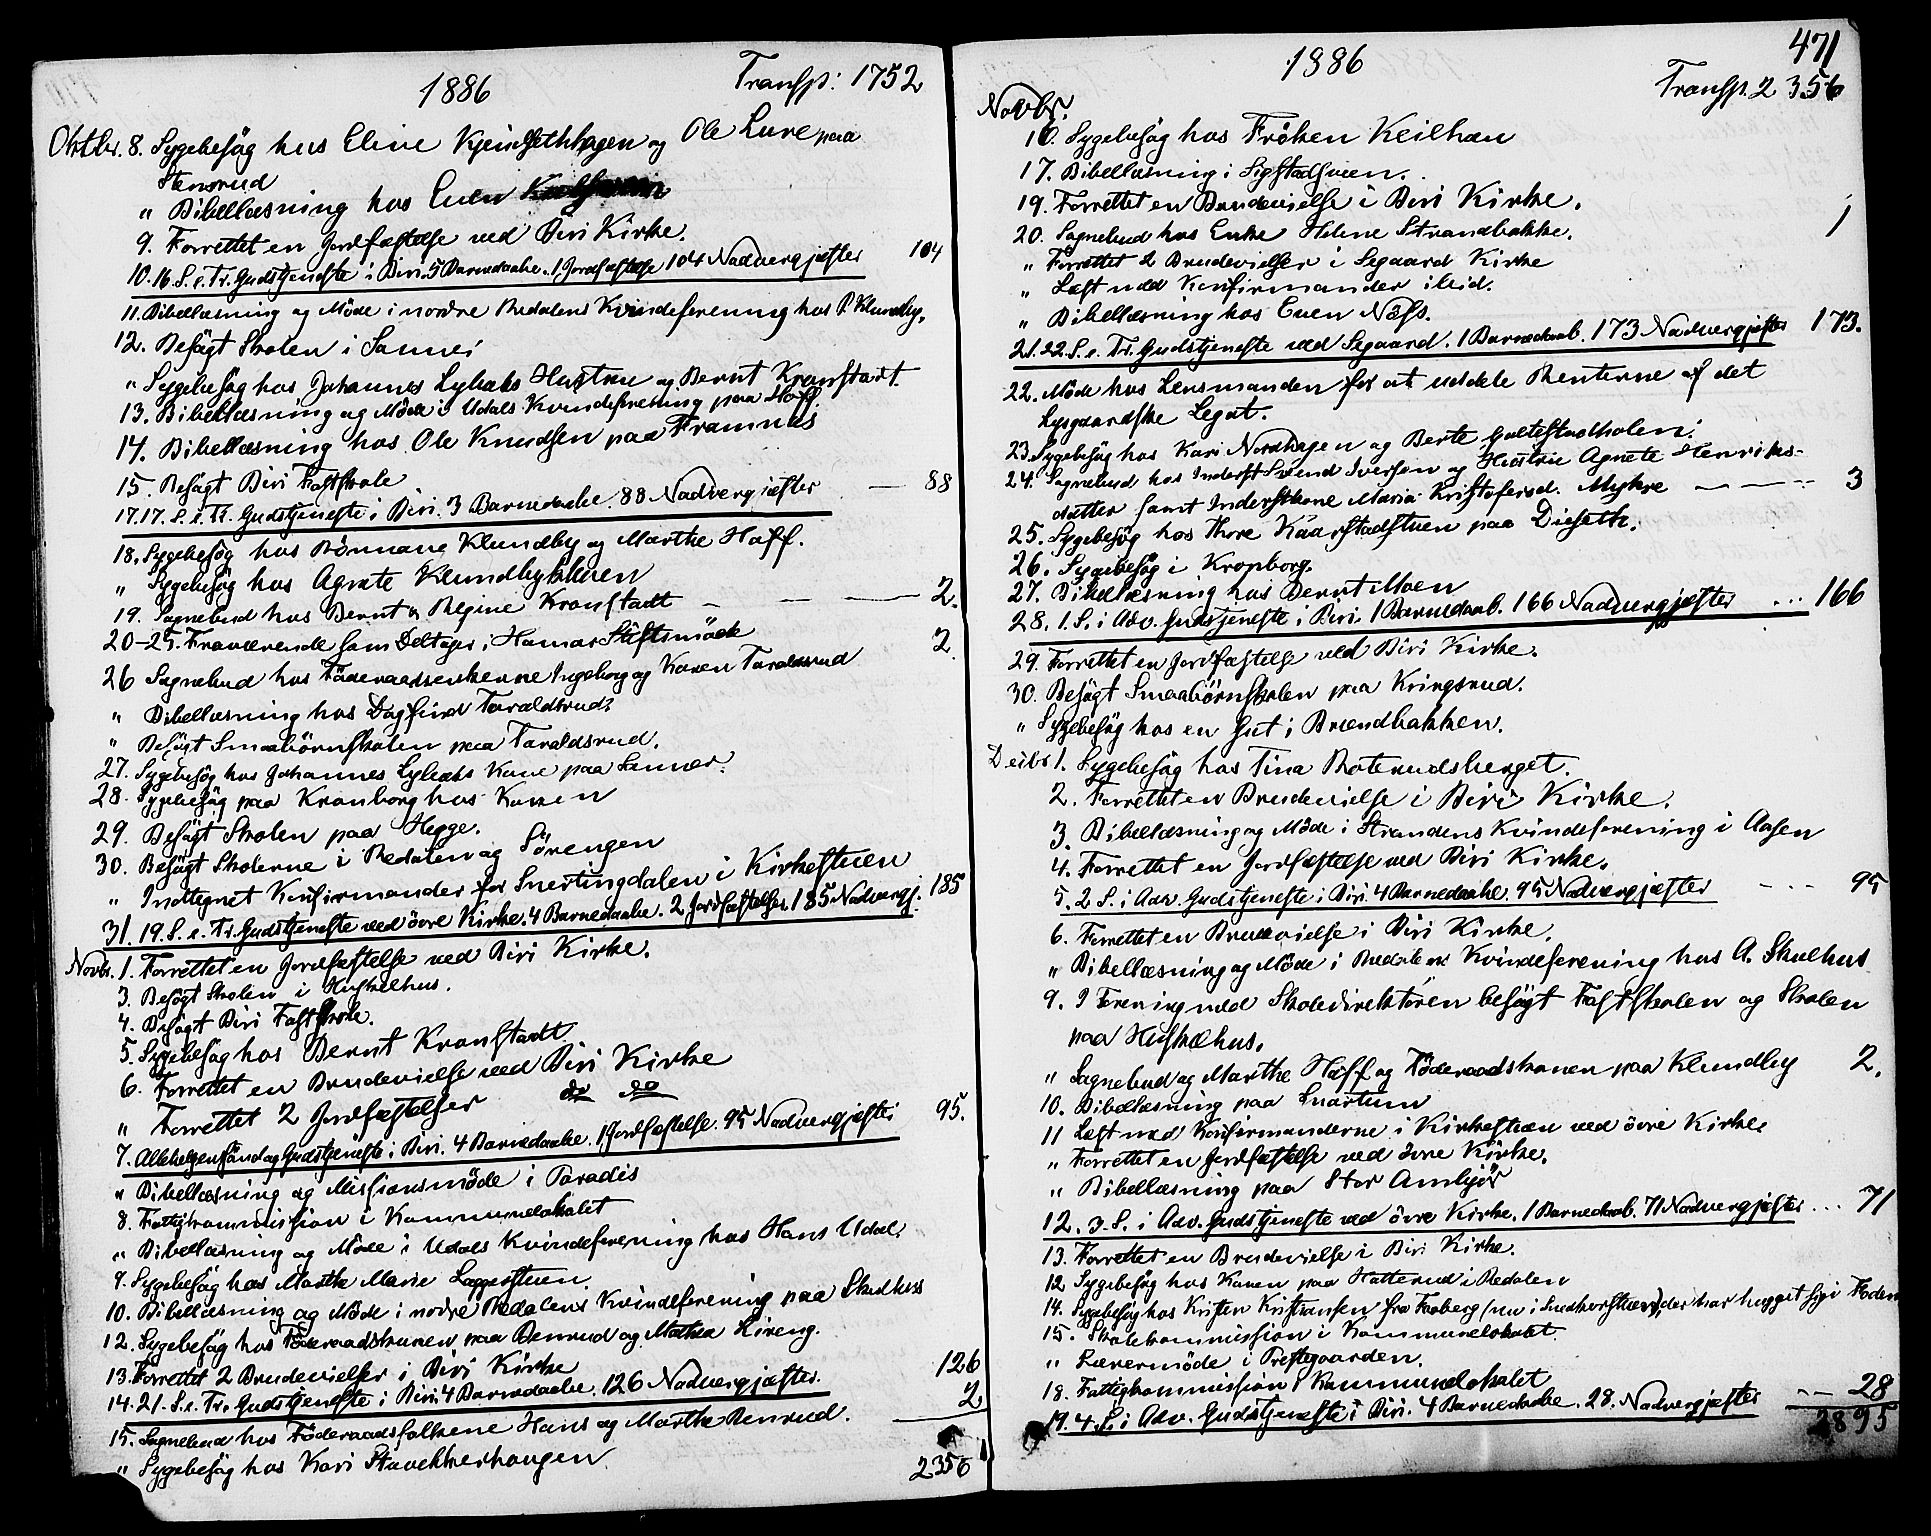 1886 Transp: 1752
Oktbr. 8. Sygebesøg hos Eline Kjeinsethhagen og Ole Lure paa
Stensrud
" Bibellæsning hos Even
9. Forrettet en Jordfæstelse ved Biri Kirke.
10. 16. S. e. Tr. Gudstjeneste i Biri. 5 Barnedaabe. 1 Jordfæstelse 104 Nadvergjæster 104
11. Bibellæsning og Møde i nordre Redalens Kvindeforening hos P. Klundby.
12. Besøgt Skolen i Sanner
" Sygebesøg hos Johannes Lybæks Hustru og Bernt Kronstadt.
13. Bibellæsning og Møde i Udals Kvindeforening paa Hoff.
14. Bibellæsning hos Ole Knudsen paa Framnes
15. Besøgt Biri Fastskole
17. 17. S. e. Tr. Gudstjeneste i Biri. 3 Barnedaabe. 88 Nadvergjæster — 88
18. Sygebesøg hos Rønnaug Klundby og Marthe Hoff.
" Sygebesøg hos Agnete Klundbykleven
19. Sognebud hos Bernt & Regine Kronstadt — — — 2.
20-25. Fraværende som Deltager i Hamar Stiftsmøde
26 Sognebud hos Föderaadsenkerne Ingeborg og Karen Taraldsrud 2.
" Bibellæsning hos Dagfind Taraldsrud.
" Besøgt Smaabørnskolen paa Taraldsrud.
27. Sygebesøg hos Johannes Lybæks Kone paa Sanner.
28. Sygebesøg paa Kronborg hos Konen
29. Besøgt Skolen paa Hegge.
30. Besøgt Skolerne i Redalen og Sörengen
" Indtegnet Konfirmander for Snertingdalen i Kirkestuen
31. 19. S. e. Tr. Gudstjeneste ved øvre Kirke. 4 Barnedaabe. 2 Jordfæstelser. 185 Nadvergj. 185
Novbr. 1. Forrettet en Jordfæstelse ved Biri Kirke.
3. Besøgt Skolen i Huskelhus.
4. Besøgt Biri Fastskole.
5. Sygebesøg hos Bernt Kronstadt.
6. Forrettet en Brudevielse ved Biri Kirke
" Forrettet 2 Jordfæstelser do do
7. Allehelgensöndag Gudstjeneste i Biri. 4 Barnedaabe. 1 Jordfæstelse. 95 Nadvergjæster 95.
" Bibellæsning og Missionsmøde i Paradis
8. Fattigkommission i Kommunelokalet
" Bibellæsning og Møde i Udals Kvindeforening hos Hans Udal.
9. Sygebesøg hos Marthe Marie Laggerstuen
10. Bibellæsning og Møde i nordre Redalens Kvindeforening paa Skulhus
12. Sygebesøg hos Föderaadskonen paa Benrud og Mathea Lireng.
13. Forrettet 2 Brudevielser i Biri Kirke
14. 21. S. e. Tr. Gudstjeneste i Biri. 4 Barnedaabe. 126 Nadvergjæster. 126
15. Sognebud hos Föderaadsfolkene Hans og Marthe Benrud. 2
" Sygebesøg hos Kari Stavekkerhaugen 2356
1886 471
Transp. 2356
Novbr.
16. Sygebesøg hos Frøken Keilhau
17. Bibellæsning i Sigstadsveen.
19. Forrettet en Brudevielse i Biri Kirke.
20. Sognebud hos Enke Helene Strandbakke. 1
" Forrettet 2 Brudevielser i Segaard Kirke
" Læst med Konfirmander ibid.
" Bibellæsning hos Even Næss.
21. 22. S. e. Tr. Gudstjeneste ved Segaard. 1 Barnedaab. 173 Nadvergjæster 173.
22. Møde hos Lensmanden for at uddele Renterne af det
Lysgaardske Legat.
23. Sygebesøg hos Kari Nordhagen og Berte Galtestadholen.
24. Sognebud hos Inderst Svend Iversen og Hustru Agnete Henriks-
datter samt Inderstkone Maria Kristofersd. Myhre — — — 3
25. Sygebesøg hos Thore Kaarstadstuen paa Dieseth.
26. Sygebesøg i Kronborg.
27. Bibellæsning hos Bernt Moen
28. 1. S. i Adv. Gudstjeneste i Biri. 1 Barnedaab. 166 Nadvergjæster ... 166
29. Forrettet en Jordfæstelse ved Biri Kirke.
30. Besøgt Smaabörnskolen paa Kringsrud.
" Sygebesøg hos en Gut i Brændbakken.
Decbr 1. Sygebesøg hos Tina Roterudsberget.
2. Forrettet en Brudevielse i Biri Kirke.
3. Bibellæsning og Møde i Strandens Kvindeforening i Aasen
4. Forrettet en Jordfæstelse ved Biri Kirke.
5. 2 S. i Adv. Gudstjeneste i Biri. 4 Barnedaabe. 95 Nadvergjæster - - - 95
6. Forrettet en Brudevielse i Biri Kirke.
" Bibellæsning og Møde i Redalens Kvindeforening hos A. Skulhus
9. I Forening med Skoledirektören besøgt Fastskolen og Skolen
paa Huskelhus.
" Sognebud og Marthe Hoff og Föderaadskonen paa Klundby 2.
10. Bibellæsning paa Svartum
11 Læst med Konfirmanderne i Kirkestuen ved övre Kirke.
" Forrettet en Jordfæstelse ved övre Kirke.
" Bibellæsning paa Stor Amlijör
12. 3. S. i Adv. Gudstjeneste ved øvre Kirke. 1 Barnedaab. 71 Nadvergjæster ... 71
13. Forrettet en Brudevielse i Biri Kirke.
12 Sygebesøg hos Konen paa Hatterud i Redalen
14. Sygebesøg hos Kristen Kristiansen fra Faaberg (nu i Smedhorstuen), der har hugget sig i Foden
15. Skolekommission i Kommunelokalet.
" Lærermöde i Prestegaarden.
18. Fattigkommission i Kommunelokalet
19. 4. S. i Adv. Gudstjeneste i Biri. 4 Barnedaabe. 28. Nadvergjæster — 28
2895